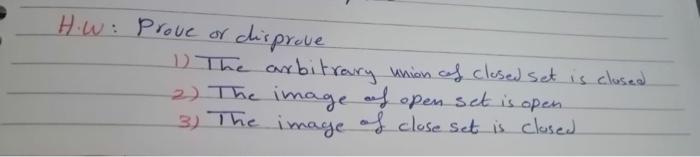 H.W: Prove or disprove
1) The arbitrary union of closed set is closed
2) The image of open set is open
3) The image of close set is closed